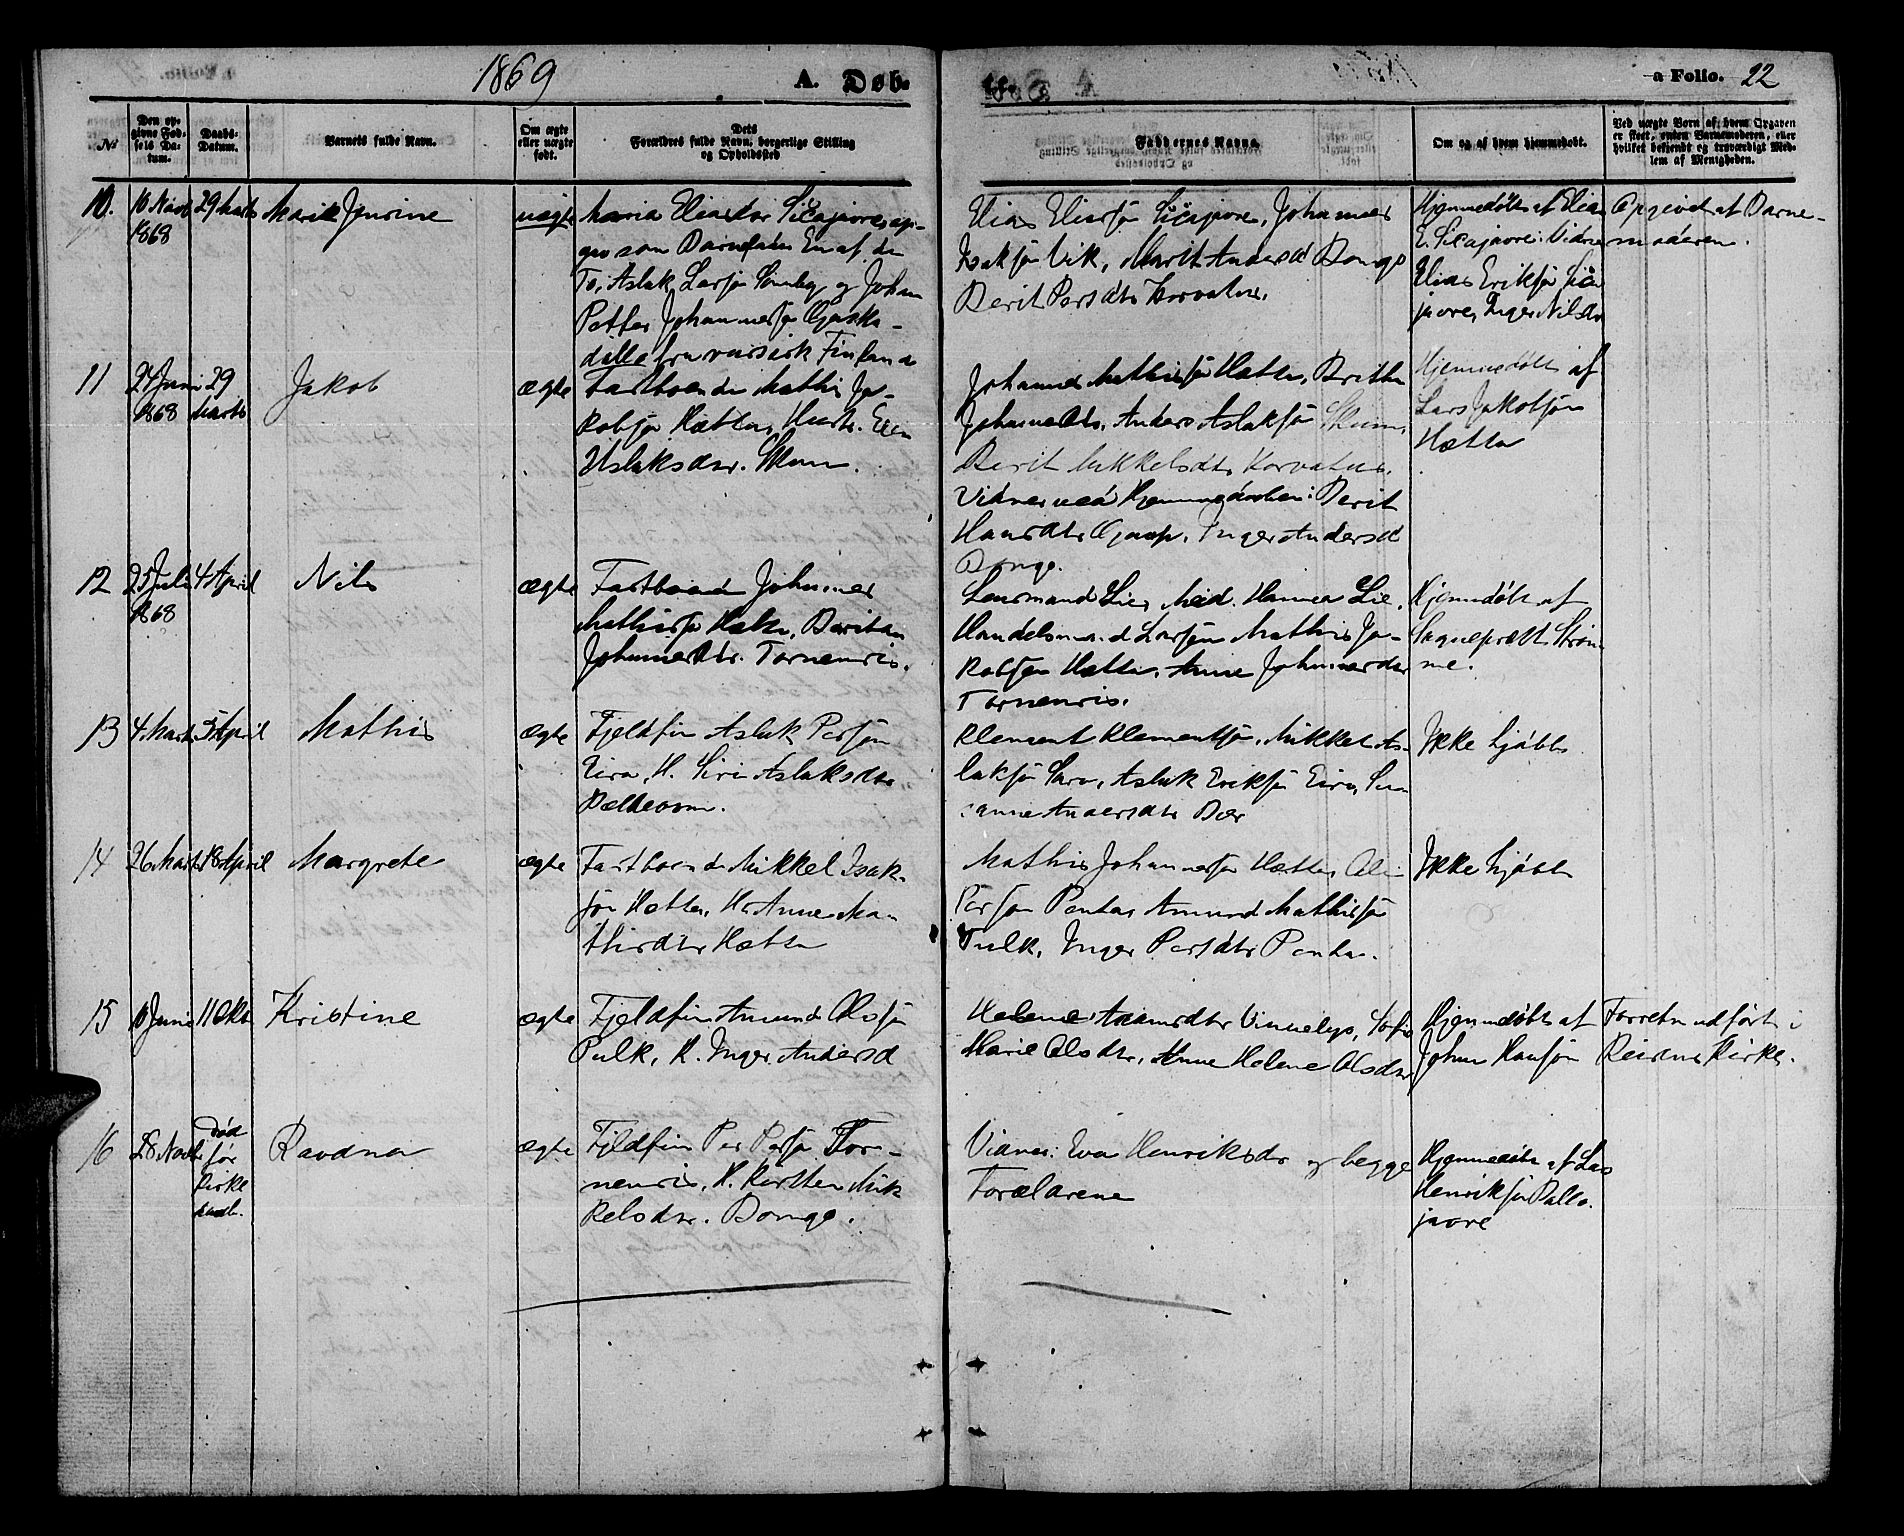 1869
A. Døb.
a Folio. 22
№
Den opgivne Fødsels Datum.
Daabs-Datum.
Barnets fulde Navn.
Om ægte eller uægte født.
Dets Forældres fulde Navn, borgerlige Stilling og Opholdssted
Faddernes Navne.
Om og af hvem hjemmedøbt.
Ved uægte Børn af hvem Opgaven er skeet, enten Barnemoderen, eller hvilket bekjendt og troværdigt Medlem af Menigheden.
10.
10 Novb
1868
29 Marts
Marie
uægte
Maria Eliasdtr Sicajavre, op-
giv som Barnefader En af de
To, Aslak Larsøn og Johan
Petter Johannesøn
fra russisk Finland
Elias Eliasøn Sicajavre, Johannes
Isaksøn Vik, Marit Andersd Bongo
Berit Persdtr Korvatus.
Hjemmedøbt af Elias
E. Sicajavre. Vidne
Elias Eriksøn Sica
javre, Inger Nilsdtr
Opgivet af Barne-
moderen.
11
24 Juni
1868
29
Marts
Jakob
ægte
Fastboende Mathis Ja-
kobsøn Hætta, Hustr. Elen
Aslaksdtr. Skum.
Johannes Mathissøn Hætta, Britha
Johannesdtr, Anders Aslaksøn Skum,
Berit Mikkelsdtr Korvatus.
Vidner ved Hjemmedaaben: Berit
Hansdtr Gaup, Inger Andersd
Bongo.
Hjemmedøbt af
Lars Jakobsøn
Hætta
12
25 Juli
1868
4 April
Nils
ægte
Fastboend Johannes
Mathissøn Hætta, Berit
Johannesdtr. Tornensis.
Lensmand Lie, Mad. Hanna Lie,
Handelsmand Larsen Mathis Ja-
kobsen Hætta, Anne Johannesdtr
Tornensis.
Hjemdøbt af
Sogneprest Strøm-
me.
13
4 Marts
5 April
Mathis
ægte
Fjeldfin Aslak Persøn
Eira, H. Siri Aslaksdtr
Klement Klementsøn, Mikkel As-
laksøn Sara, Aslak Eriksøn Eira, Su-
sanne Andersdtr Bær
Ikke hjdøbt
14
26 Marts
18 April
Margrete
ægte
Fastboende Mikkel Isak-
søn Hætta, H. Anne Ma-
thisdtr Hætta
Mathis Johannessøn Hætta, Ole
Persøn Pentha, Amund Mathissøn
Pulk, Inger Persdtr Pentha.
Ikke hjdøbt
15
10 Juni
11 Okt
Kristine
ægte
Fjeldfin Amund Olsøn
Pulk, H. Inger Andersd
Helene Adamsdtr Vinnelys, Sofie
Marie Olsdtr, Anne Helene Olsdtr
Hjemmedøbt af
Johan Hansøn
Forretn udført i
Skirke.
16
28 Novb
død
før
kirke
Ravdna
ægte
Fjeldfin Per Persøn Tor-
nensis, H. Kirsten Mik
kelsdtr. Bongo.
Vidner: Eva Henriksdtr og begge
Forældrene
Hjemmedøbt af Lars
Henriksøn Pallo-
javre